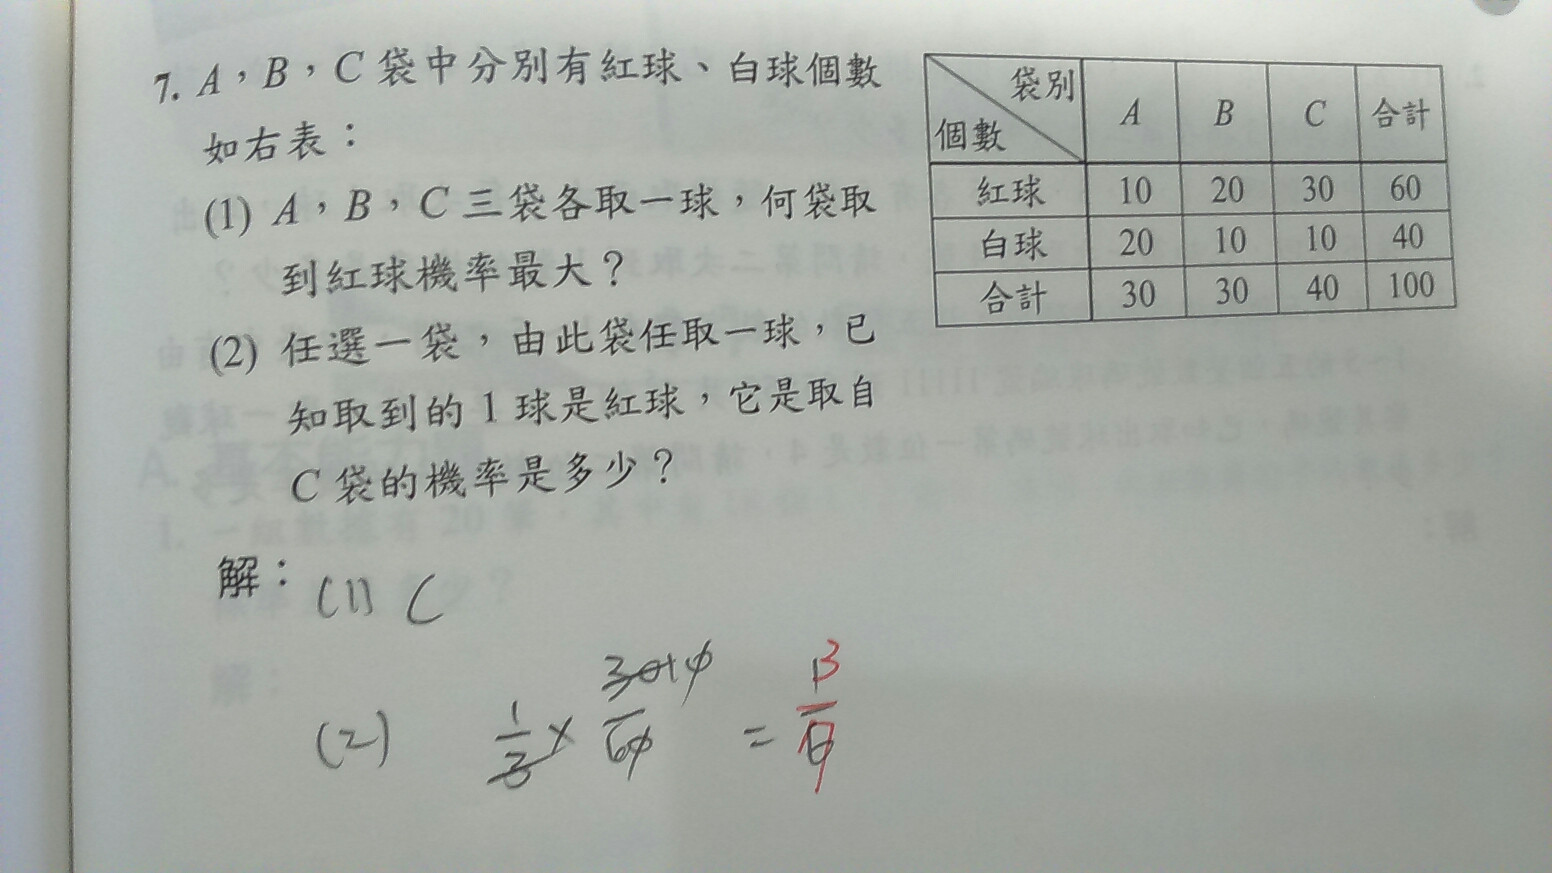 7. A，B，C 袋中分別有紅球、白球個數
如右表：
(1) A，B，C 三袋各取一球，何袋取
到紅球機率最大？
(2) 任選一袋，由此袋任取一球，已
知取到的 1 球是紅球，它是取自
C 袋的機率是多少？
袋別 個數 A B C 合計
紅球 10 20 30 60
白球 20 10 10 40
合計 30 30 40 100
解：
(1) C
(2) 1/3 ×